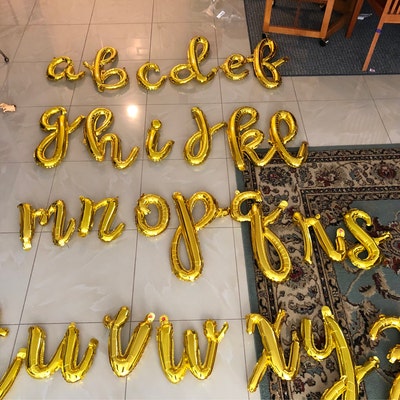 abcdef
ghijkl
mnopqrs
uvwxy